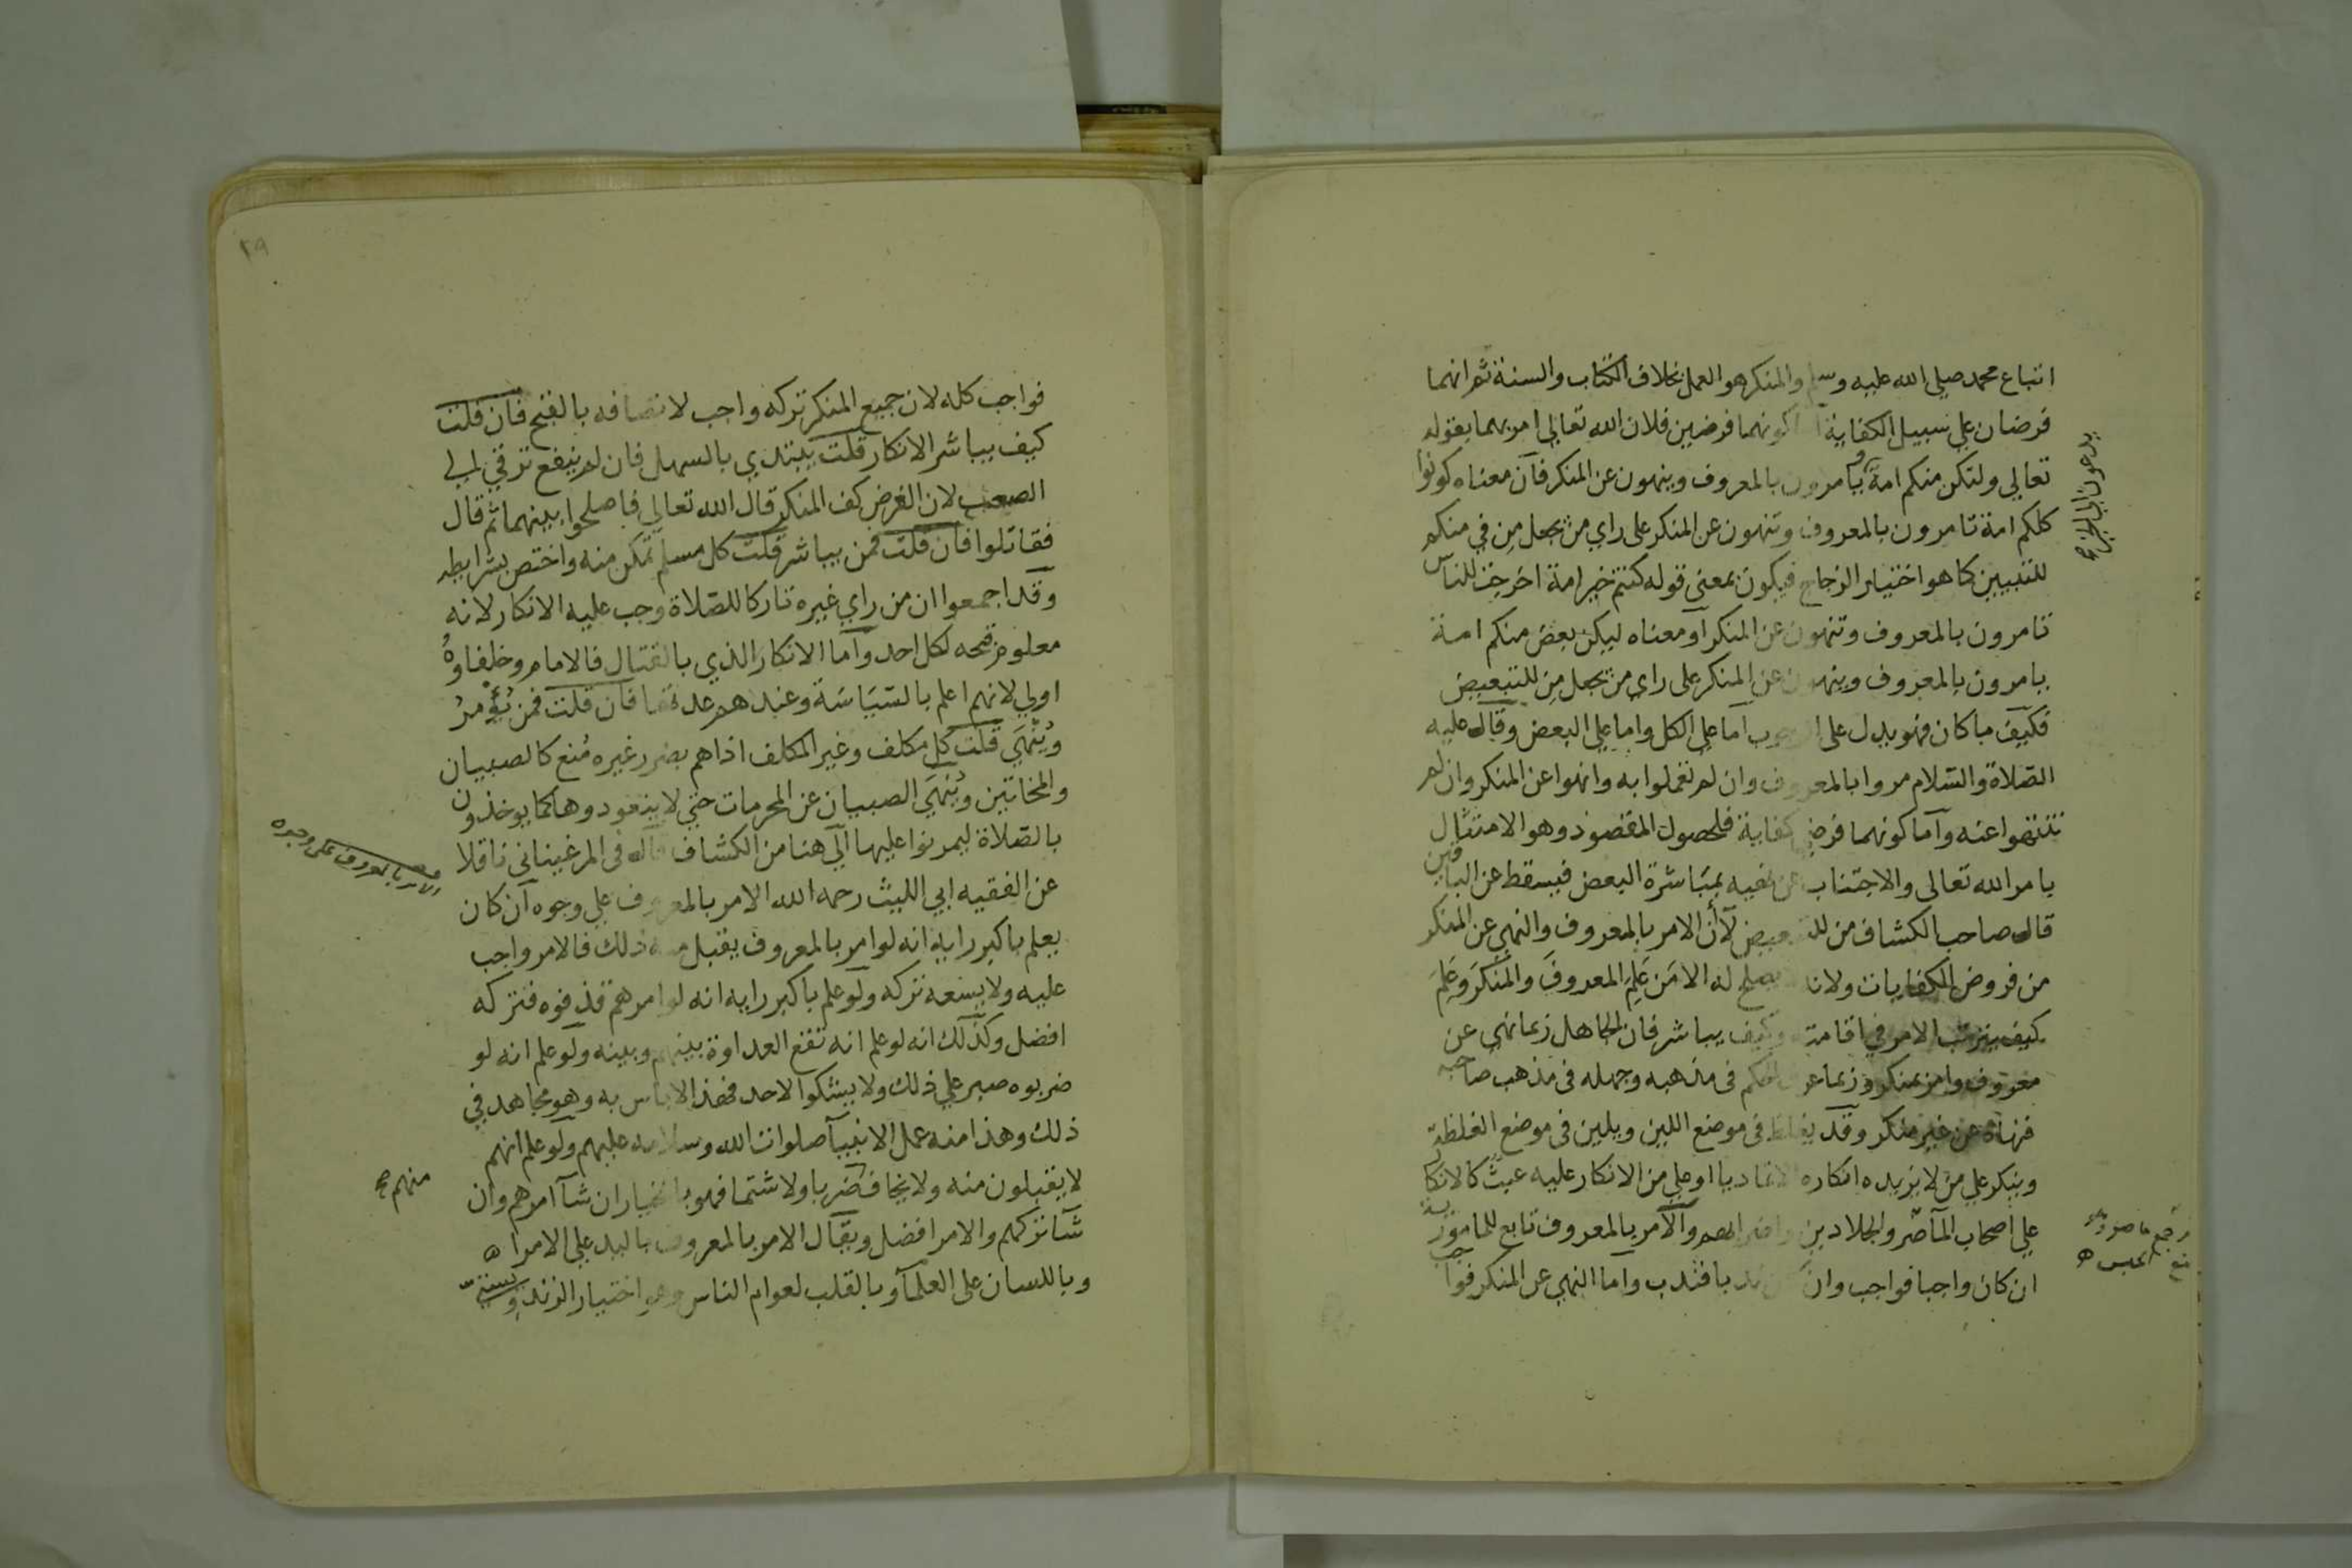 اتباع محمد صلي الله عليه وسلم والمنكر هو العمل بخلاف الكتاب والسنة ثم انهما
فرضان علي سبيل الكفاية كونهما فرضين فلان الله تعالي امر بهما بقوله
تعالي ولتكن منكم امة ويامرون بالمعروف وينهون عن المنكر فان معناه كونوا
يدعون الي الخير
كلكم امة تامرون بالمعروف وتنهون عن المنكر علي راي من يجعل من في منكم
للتبيين كما هو اختيار الزجاج فيكون بمعني قوله كنتم خير امة اخرجت للناس
تامرون بالمعروف وتنهون عن المنكر او معناه ليكن بعض منكم امة
يامرون بالمعروف وينهون عن المنكر علي راي من يجعل من للتبعيض
فكيف ما كان فهو يدل علي اما علي الكل واما علي البعض وقال عليه
الصلاة والسلام مروا بالمعروف وان لم تعملوا به وانهوا عن المنكر وان لم
تنتهوا عنه واما كونهما فرض كفاية فلحصول المقصود وهو الامتثال
بامر الله تعالي والاجتناب عن نهيه بمباشرة البعض فيسقط عن الباقين
قال صاحب الكشاف من للتبعيض لان الامر بالمعروف والنهي عن المنكر
من فروض الكفايات ولانه لا يصلح له الا من علم المعروف والمنكر وعلم
كيف يترتب الامر في اقامته وكيف يباشر فان الجاهل ربما نهي عن
معروف وامر بمنكر وربما عرف الحكم في مذهبه وجهله في مذهب صاحبه
فنهاه عن غير منكر وقد يغلظ في موضع اللين ويلين في موضع الغلظة
وينكر علي من لا يزيده انكاره الا تماديا او علي من الانكار عليه عبث كالانكار
علي اصحاب المآصر والجلادين واضرابهم والامر بالمعروف تابع للمامور به
ان كان واجبا فواجب وان كان ندبا فندب واما النهي عن المنكر فواجب
فواجب كله لان جميع المنكر تركه واجب لاتصافه بالقبح فان قلت
كيف يباشر الانكار قلت يبتدي بالسهل فان لم ينفع ترقي الي
الصعب لان الغرض كف المنكر قال الله تعالي فاصلحوا بينهما ثم قال
فقاتلوا فان قلت فمن يباشر قلت كل مسلم تمكن منه واختص بشرايطه
وقد اجمعوا ان من راي غيره تاركا للصلاة وجب عليه الانكار لانه
معلوم قبحه لكل احد واما الانكار الذي بالقتال فالامام وخلفاوه
اولي لانهم اعلم بالسياسة وعندهم عدتها فان قلت فمن يؤمر
وينهي قلت كل مكلف وغير المكلف اذا هم بضرر غيره منع كالصبيان
والمجانين وينهي الصبيان عن المحرمات حتي لا يتعودوها كما يوخذون
بالصلاة ليمرنوا عليها الي هنا من الكشاف قال في المرغيناني ناقلا
عن الفقيه ابي الليث رحمه الله الامر بالمعروف علي وجوه ان كان
الامر بالمعروف علي وجوه
يعلم باكبر رايه انه لو امر بالمعروف يقبل منه ذلك فالامر واجب
عليه ولا يسعه تركه ولو علم باكبر رايه انه لو امرهم قذفوه فتركه
افضل وكذلك انه لو علم انه تقع العداوة بينهم وبينه ولو علم انه لو
ضربوه صبر علي ذلك ولا يشكوا لاحد فهذا لا باس به وهو مجاهد في
ذلك وهذا منه عمل الانبيا صلوات الله وسلامه عليهم ولو علم انهم
لا يقبلون منه ولا يخاف ضربا ولا شتما فهو بالخيار ان شا امرهم وان
منهم
شا تركهم والامر افضل ويقال الامر بالمعروف باليد علي الامرا
وباللسان علي العلما وبالقلب لعوام الناس وهو اختيار الزندويستي